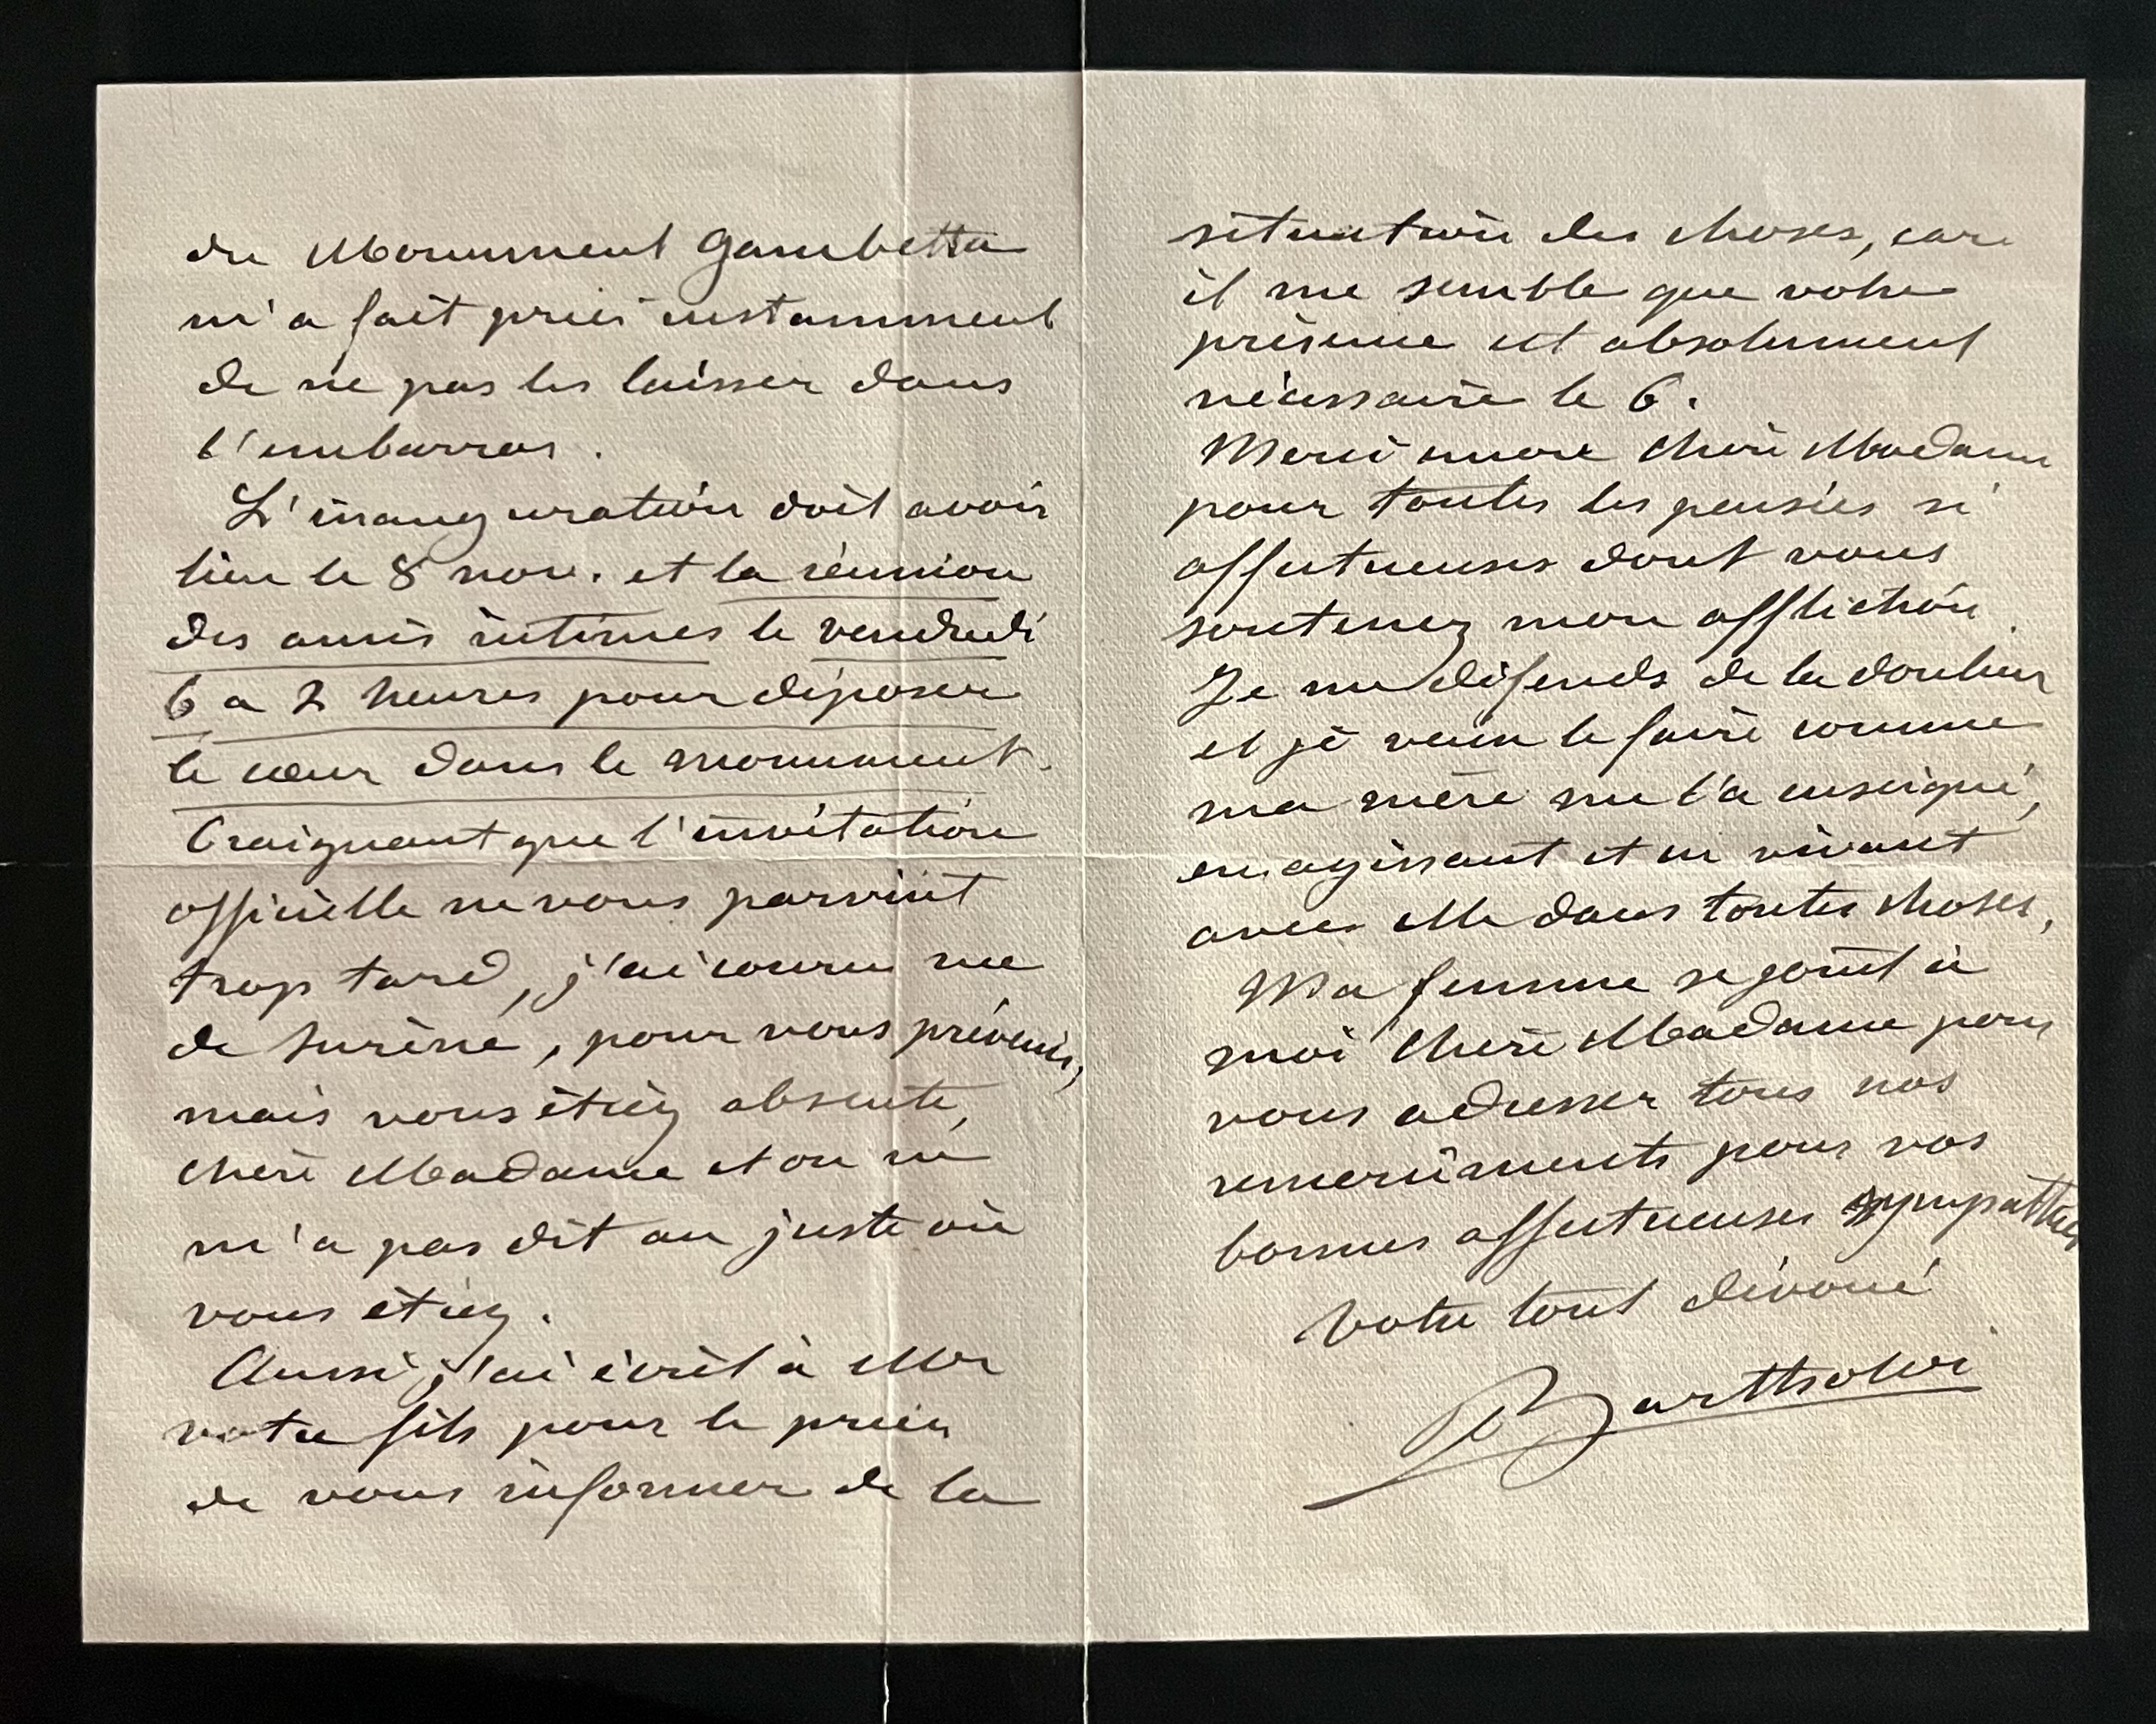 du Monument Gambetta
m'a fait prier instamment
de ne pas les laisser dans
l'embarras.
L'inauguration doit avoir
lieu le 8 nov. et la réunion
des amis intimes le vendredi
6 a 2 heures pour déposer
le cœur dans le monument.
Craignant que l'invitation
officielle ne vous parvint
trop tard, j'ai couru rue
de Surène, pour vous prévenir,
mais vous étiez absente,
chère Madame et on ne
m'a pas dit au juste où
vous étiez.
Aussi j'ai écrit à Mr
votre fils pour le prier
de vous informer de la
situation des choses, car
il me semble que votre
présence est absolument
nécessaire le 6.
Merci encore chère Madame
pour toutes les pensées si
affectueuses dont vous
soutenez mon affliction.
Je me défends de la douleur
et je veux le faire comme
ma mère me l'a enseigné,
en agissant et en vivant
avec elle dans toutes choses,
Ma femme se joint à
moi chère Madame pour
vous adresser tous nos
remerciments pour vos
bonnes affectueuses sympathies
Votre tout dévoué
Bartholdi